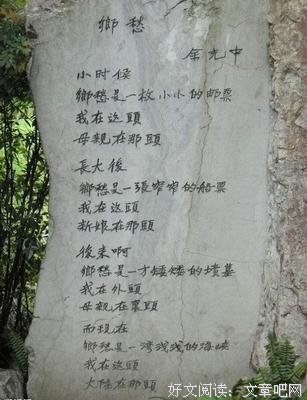 鄉愁
余光中
小时候
鄉愁是一枚小小的邮票
我在这頭
母親在那頭
長大後
鄉愁是一張窄窄的船票
我在这頭
新娘在那頭
後来啊
鄉愁是一方矮矮的墳墓
我在外頭
母親在裏頭
而現在
鄉愁是一湾浅浅的海峡
我在这頭
大陆在那頭
好文阅读：文章吧网